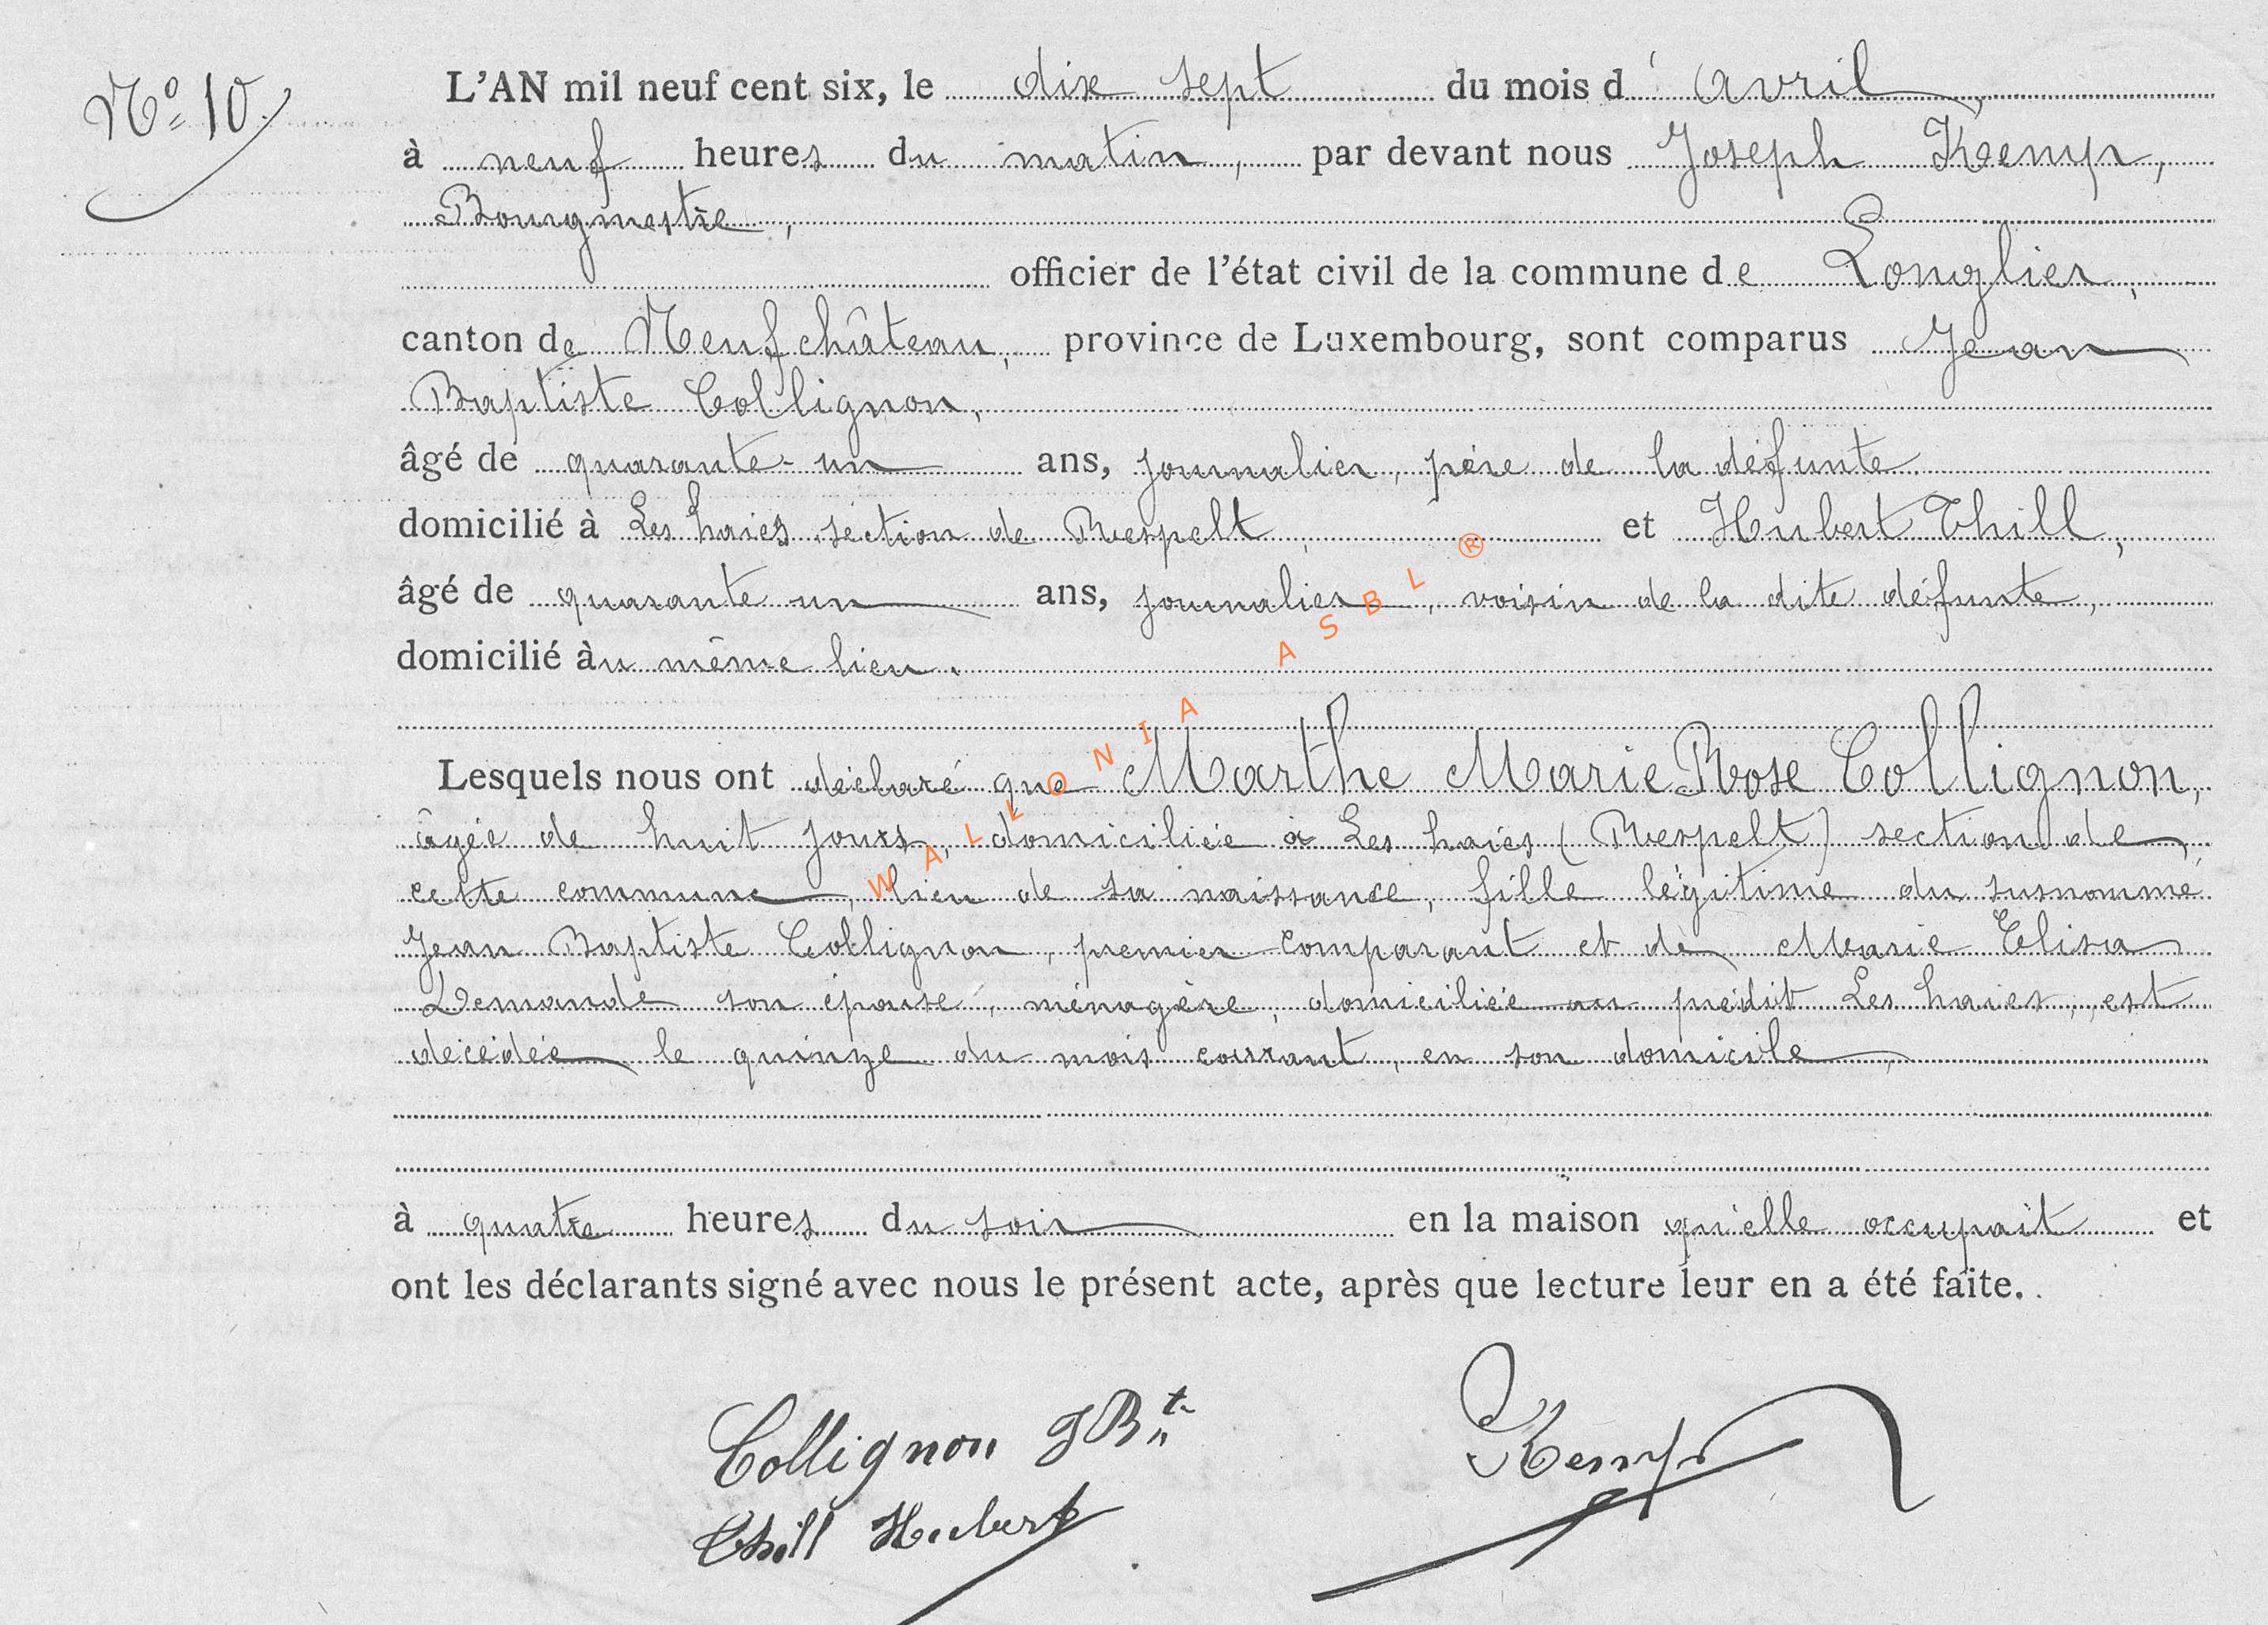 Nº 10.
L'AN mil neuf cent six, le dix sept du mois d'avril,
à neuf heures du matin, par devant nous Joseph Kemp,
Bourgmestre,
officier de l'état civil de la commune de Longlier,
canton de Neufchâteau, province de Luxembourg, sont comparus Jean
Baptiste Collignon,
âgé de quarante-un ans, journalier, père de la défunte
domicilié à Les haies, section de Respelt, et Hubert Thill,
âgé de quarante un ans, journalier, voisin de la dite défunte,
domicilié àu même lieu.
Lesquels nous ont déclaré que Marthe Marie Rose Collignon,
âgée de huit jours, domiciliée à Les haies (Respelt) section de
cette commune, lieu de sa naissance, fille légitime du susnommé
Jean Baptiste Collignon, premier comparant et de Marie Elisa
Demande son épouse, ménagère, domiciliée au prédit Les haies, est
décédée le quinze du mois courant, en son domicile,
à quatre heures du soir en la maison qu'elle occupait et
ont les déclarants signé avec nous le présent acte, après que lecture leur en a été faite.
Collignon JBte
Kemp
Thill Hubert
WALLONIA ASBL ®